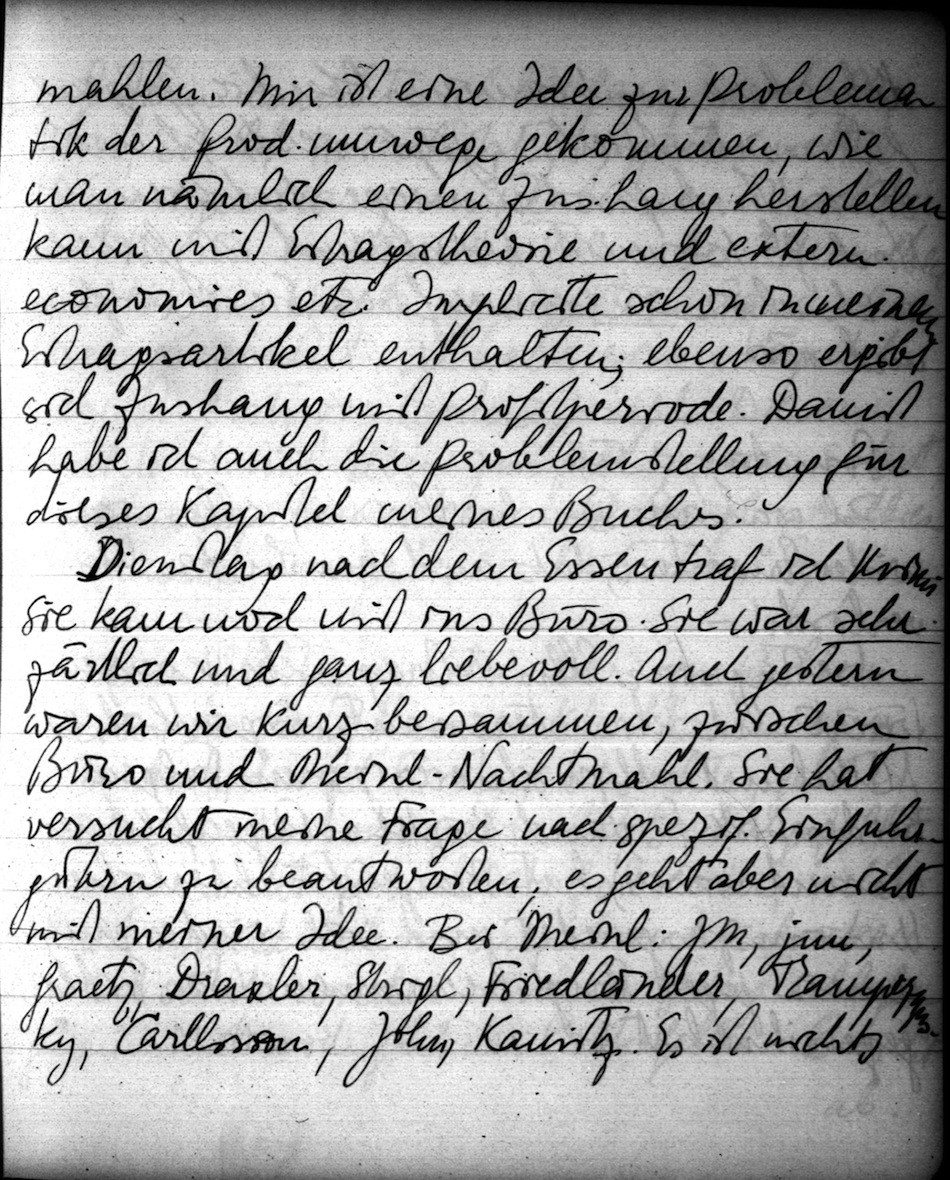 mahlen. Mir ist eine Idee zur Problema
tik der Prod.umwege gekommen, wie
man nämlich einen Zus.hang herstellen
kann mit Ertragstheorie und extern.
economies etc. Implicite schon in meinem
Ertragsartikel enthalten; ebenso ergibt
sich Zushang mit Profitperiode. Damit
habe ich auch die Problemstellung für
dieses Kapitel meines Buches.
Dienstag nach dem Essen traf ich
Sie kam noch mit ins Büro. Sie war sehr
zärtlich und ganz liebevoll. Auch gestern
waren wir kurz beisammen, zwischen
Büro und Meinl-Nachtmahl. Sie hat
versucht meine Frage nach spezif. Einfuhr
gütern zu beantworten, es geht aber nicht
mit meiner Idee. Bei Meinl: JM, jun,
Draxler, Strigl, Friedländer,
ky, John, Kamitz. Es ist nichts